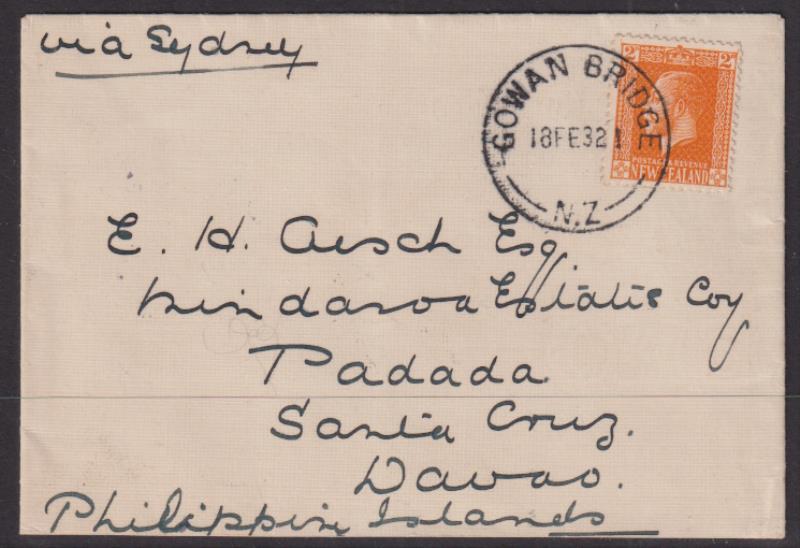 via Sydney
2d 2d
GOWAN BRIDGE
18FE32 1
N.Z
POSTAGE & REVENUE
NEW ZEALAND
E. H. Aesch Esq
Estate Coy
Padada
Santa Cruz.
Davao.
Philippine Islands